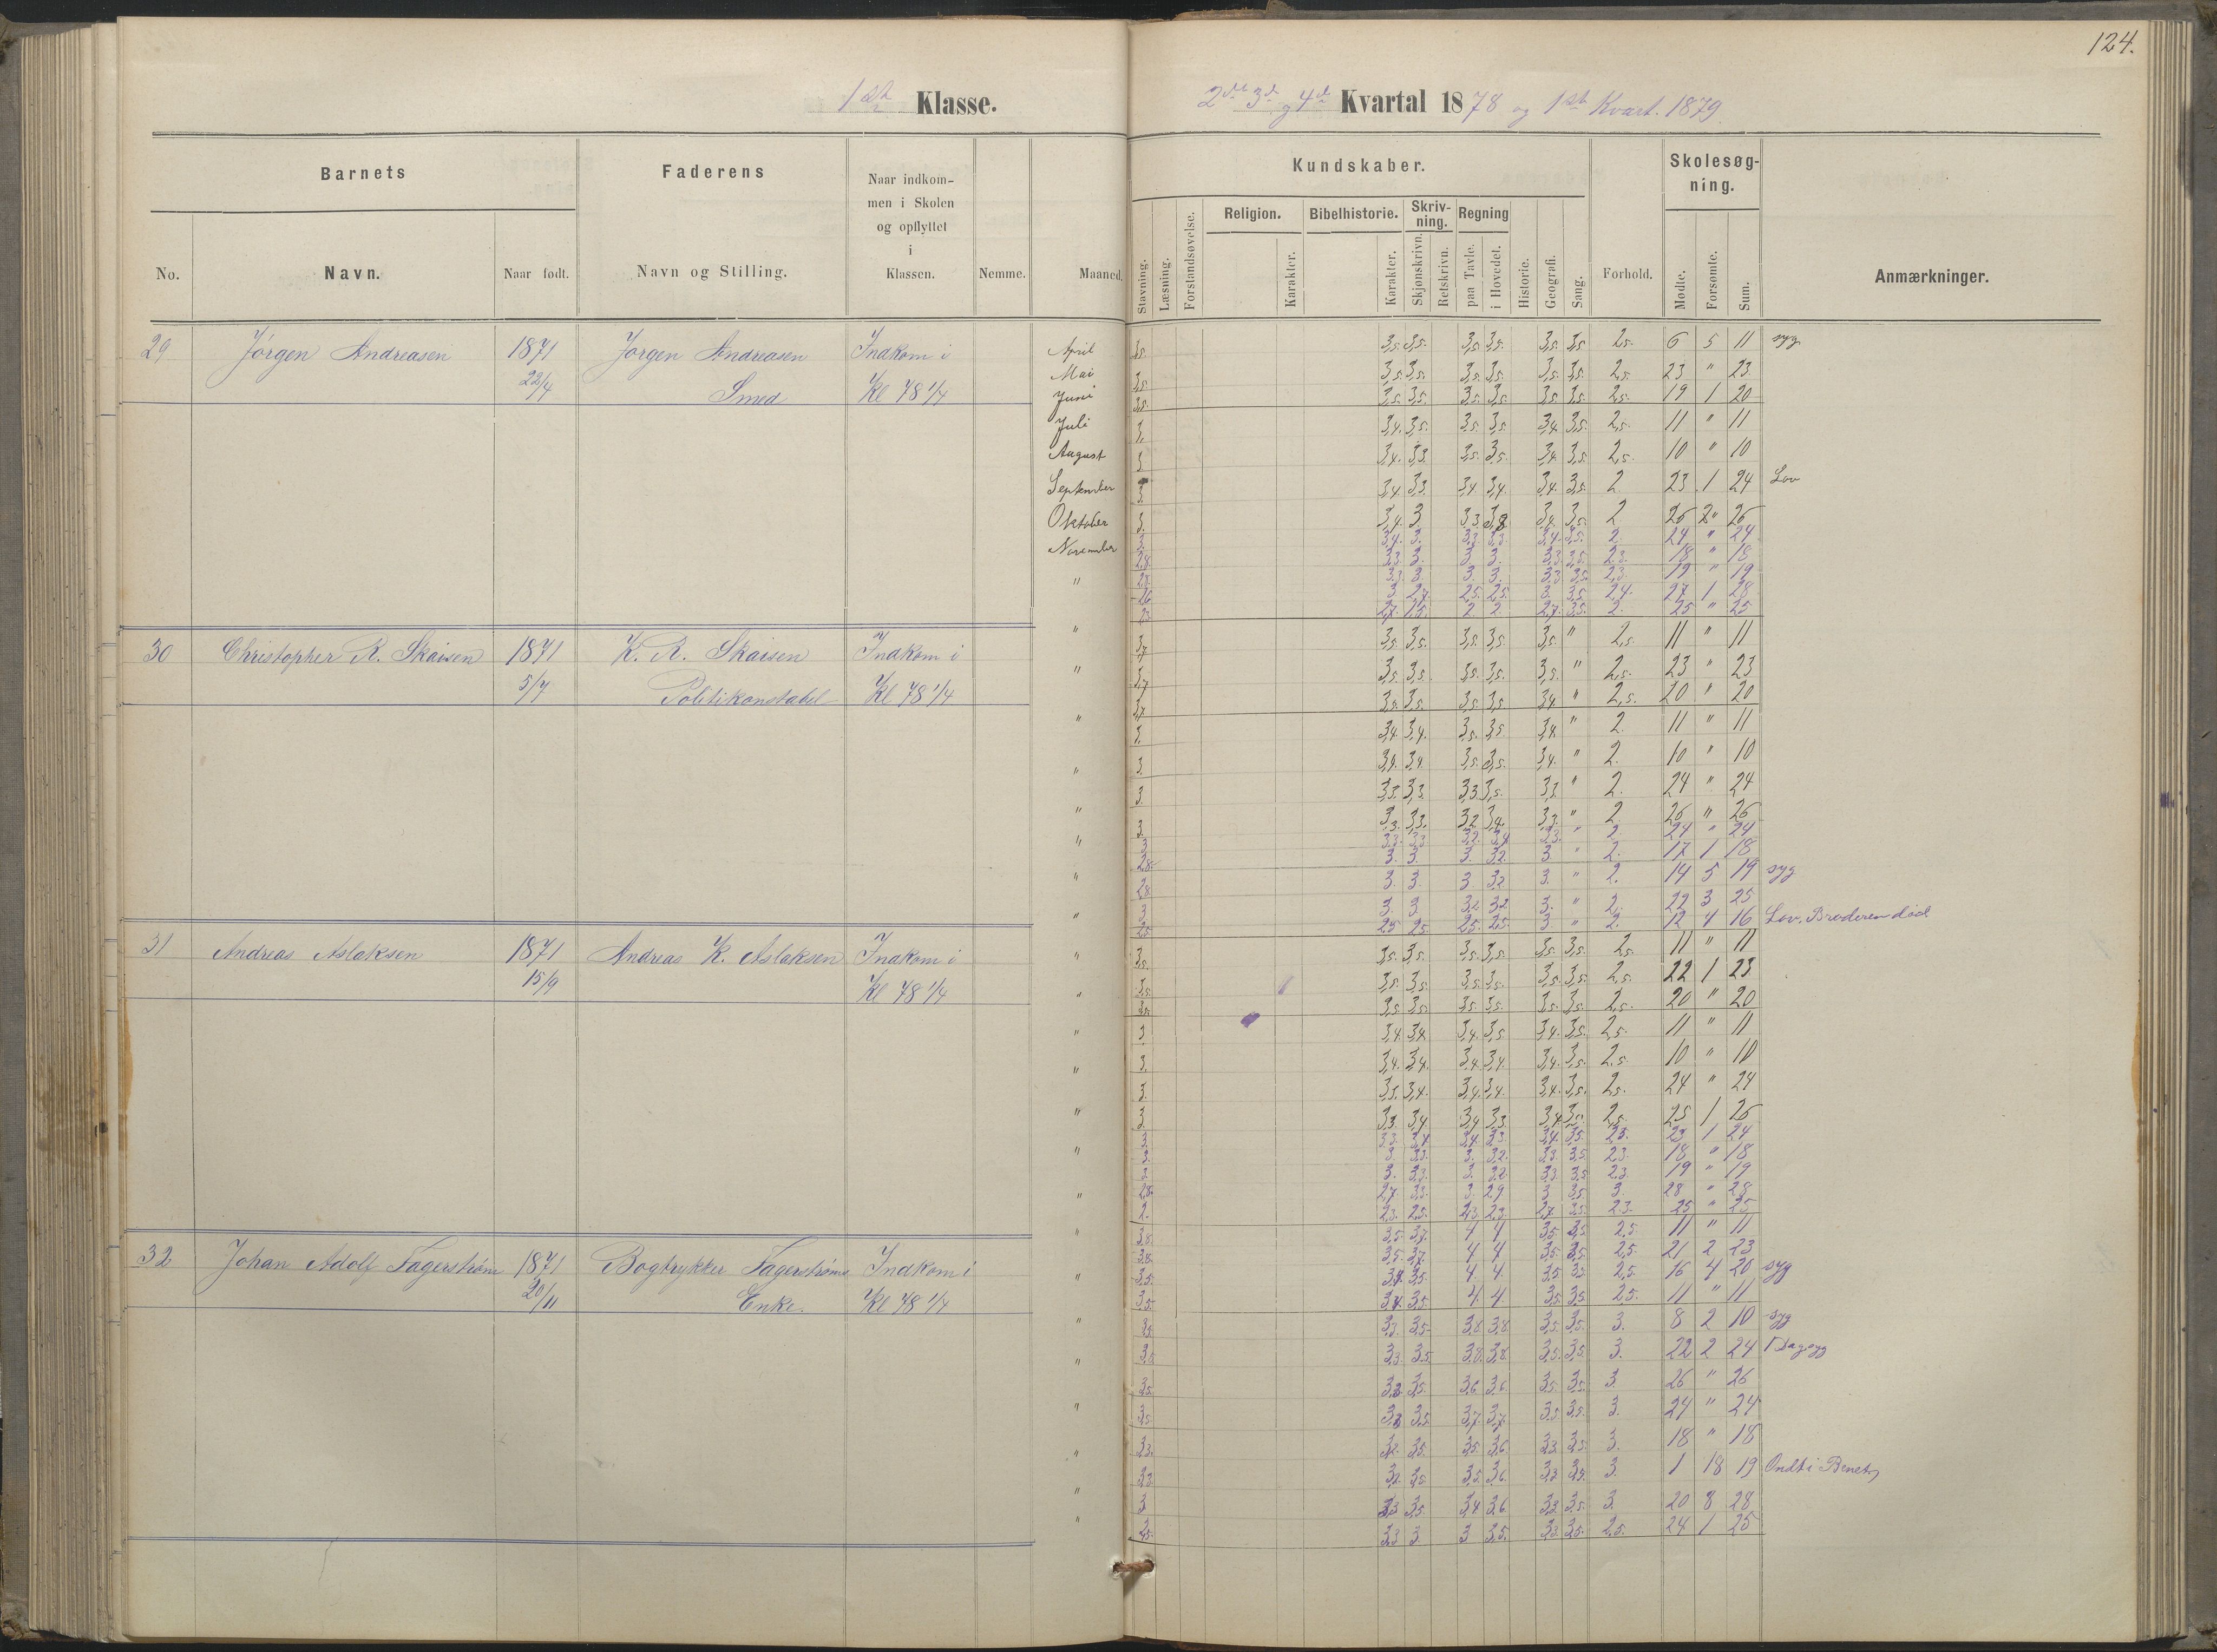 124.
1ste Klasse.
2det 3die og 4de Kvartal 1878 og 1ste Kvart. 1879
Barnets
Faderens
Naar indkom-
men i Skolen
og opflyttet
i
Klassen.
No.
Navn.
Naar født.
Navn og Stilling.
Nemme.
Maaned.
Kundskaber.
Skolesøg-
ning.
Stavning.
Læsning.
Forstandsøvelse.
Religion.
Karakter.
Bibelhistorie.
Karakter.
Skriv-
ning.
Skjønskrivn.
Retskrivn.
Regning
paa Tavle.
i Hovedet.
Historie.
Geografi.
Sang.
Forhold.
Mødte.
Forsømte.
Sum.
Anmærkninger.
29 Jørgen Andreasen 1871 Jørgen Andreasen Indkom i
22/4 Smed Kl 78 1/4
April 3,5. 3,5. 3,5. 3,5. 3,5. 3,5. 3,5. 2,5. 6 5 11 syg
Mai 3,5. 3,5. 3,5. 3,5. 3,5. 3,5. 3,5. 2,5. 23 " 23
Juni 3,5. 3,5. 3,5. 3,5. 3,5. 3,5. 3,5. 2,5. 19 1 20
Juli 3. 3,4. 3,5. 3,5. 3,5. 3,4. 3,5. 2,5. 11 " 11
August 3 3,4. 3,3. 3,5. 3,5. 3,4. 3,5. 2,5. 10 " 10
September 3. 3,4. 3,3. 3,4. 3,4. 3,4. 3,5. 2 23 1 24 Lov
Oktober 3. 3,4. 3 3,3. 3,4. 3,5. 2 26
November 3,4. 3. 3,3. 3,3. 3,4. 3,5. 2. 24 " 24
2,8. 3,3. 3. 3 3. 3,3. 3,5. 2,3. 18 " 18
" 3,3. 3. 3. 3. 3,3. 3,5. 2,3 19 " 19
2,6 3. 2,7. 2,5. 2,5. 3. 3,5. 2,4. 27 1 28
2,7. 2 2. 2,7. 3,5. 2. 25 " 25
30 Christopher R. Skaisen 1871 K. R. Skaisen Indkom i
5/7 Politikonstabel Kl 78 1/4
3,7 3,5. 3,5. 3,5. 3,5. 3,5. " 2,5. 11 " 11
3,7 3,5. 3,5. 3,5. 3,5. 3,5. " 2,5. 23 " 23
3,7 3,5. 3,5. 3,5. 3,5. 3,4 " 2,5. 20 " 20
3. 3,4. 3,4. 3,5. 3,5. 3,4 " 2. 11 " 11
3. 3,4. 3,4. 3,5. 3,5. 3,4. " 2. 10 " 10
3. 3,3. 3,3. 3,3 3,5. 3,3. " 2. 24 " 24
3. 3,3. 3,3. 3,2 3,4. 3,3. " 2 26 " 26
3 3,3. 3,3 3,2. 3,4 3,3. " 2 24 " 24
2,8. 3. 3. 3. 3,2. 3. " 2. 17 1 18
2,8. 3. 3. 3 3,2 3. " 2. 14 5 19 syg
3. 3. 3 3,2 3,2 3. " 2. 22 3 25
2,5. 2,5. 2,5. 2,5. 2,5. 3 " 2. 12 4 16 Lov. Broderen død
31 Andreas Aslaksen 1871 Andreas K. Aslaksen Indkom i
15/9 Kl 78 1/4
3,5. 3,5. 3,5. 3,5. 3,5. 3,5. 3,5. 2,5. 11 " 11
3,5. 3,5. 3,5. 3,5. 3,5. 3,5. 3,5. 2,5. 22 1 23
3,5. 3,5. 3,5. 3,5. 3,5. 3,5. 3,5. 2,5. 20 " 20
3 3,4. 3,4. 3,4. 3,5 3,4. 3,5. 2,5. 11 " 11
3. 3,4. 3,4. 3,4. 3,4. 3,4. 3,5. 2,5. 10 " 10
3. 3,4. 3,4. 3,4. 3,4. 3,5. 2,5. 24 " 24
3. 3,3. 3,4 3,4 3,3. 3,4. 3,5. 2,5. 25 1 26
3. 3,3. 3,4 3,4. 3,3. 3,4. 3,5. 2,3. 23 1 24
3. 3 3,3. 3. 3,2. 3,3 3,5. 2,3. 18 " 18
3 3. 3,3. 3. 3,2 3,3 3,5 2,3 19 " 19
2,8. 2,7. 3,3. 3. 2,9 3 3,5 3. 28 " 28
2. 2,3. 2,5. 2,3. 2,3. 2,7. 3,5. 2,3. 25 " 25
32 Johan Adolf Fagerstrøm 1871 Bogtrykker Fagerstrøms Indkom i
20/11 Enke. Kl 78 1/4
3,5. 3,5. 3,7. 4 4 3,5. 3,5 2,5. 11 " 11
3,5. 3,7. 4 4 3,5. 3,5. 2,5. 21 2 23
3,5. 3,4. 3,5. 4. 4. 3,5 3,5. 2,5. 16 4 20 syg
3,5. 3,4. 3,5. 4. 4 3,5. 3,5. 2,5. 11 " 11
3,5. 3,3. 3,5. 3,8. 3,8 3,5. 3,5. 3. 8 2 10 syg
3,3. 3,5. 3,8. 3,8. 3,5. 3,5. 3. 22 2 24 1 Dag syg
3,5. 3,3 3,5. 3,6 3,6. 3,5. 3,5. 3. 26 " 26
3,5. 3,3 3,5. 3,7. 3,7. 3,5. 3,5. 3. 24 " 24
3,3. 3,2. 3,5. 3,5. 3,6 3,3. 3,5. 3. 18 " 18
3,3. 3,2. 3,5. 3,5. 3,6. 3,3 3,5. 3. 1 18 19 Ondt i Benet
3 3,3 3,5. 3,4 3,6 3,3. 3,5. 3. 20 8 28
2,5. 3,3 3. 3 3,5. 3,3. 3,5. 2,5. 24 1 25